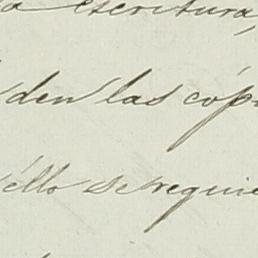 escritura,
den las cóp
ello se requie